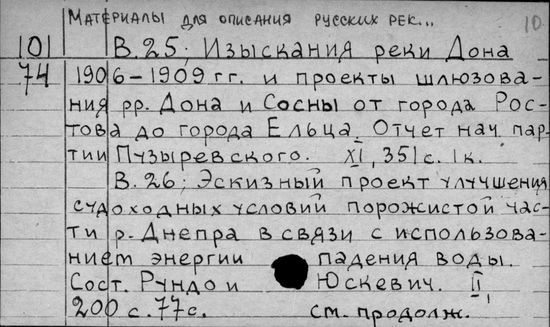 Материалы для описания русских рек... 10
101 В.25; Изыскания реки Дона
74 1906-1909 гг. и проекты шлюзова-
ния рр. Дона и Сосны от города Рос-
това до города Ельца. Отчет нач. пар-
тии Пузыревского. XI, 351 с. 1к.
В.26: Эскизный проект улучшения
судоходных условий порожистой час-
ти р. Днепра в связи с использова-
нием энергии падения воды.
Сост. Рундо и Юскевич. II,
200 с. 77с. см. продолж.